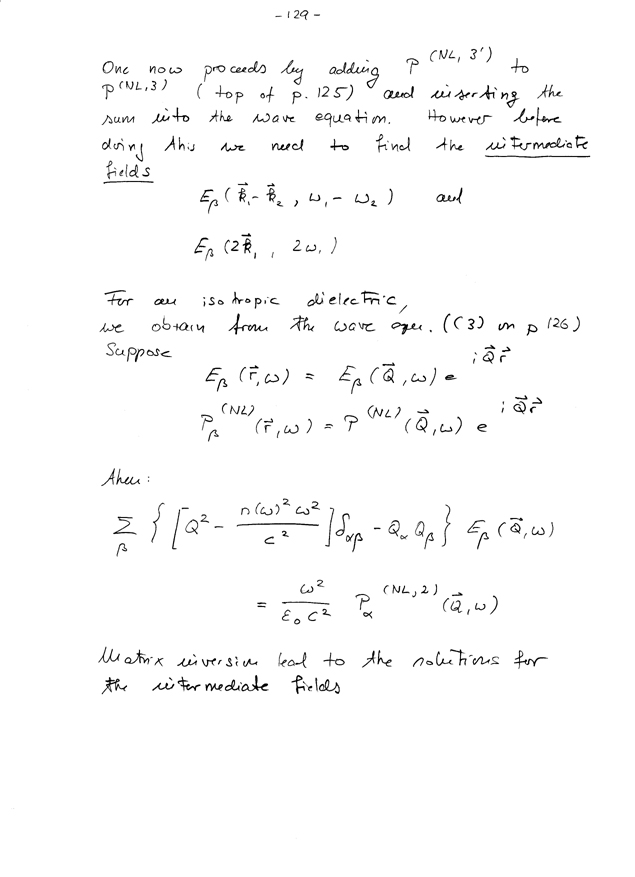 -129-
One now proceeds by adding P^(NL, 3') to
P^(NL,3) ( top of p. 125) and inserting the
sum into the wave equation. However before
doing this we need to find the intermediate
fields
E_β ( k⃗_1 - k⃗_2 , ω_1 - ω_2 ) and
E_β ( 2k⃗_1 , 2ω_1 )
For an isotropic dielectric,
we obtain from the wave eqn. ((3) on p 126)
Suppose
E_β (r⃗, ω) = E_β (Q⃗, ω) e^{i Q⃗ r⃗}
P_β^(NL) (r⃗, ω) = P^(NL) (Q⃗, ω) e^{i Q⃗ r⃗}
Then :
Σ_β { [ Q² - n(ω)² ω² / c² ] δ_αβ - Q_α Q_β } E_β (Q⃗, ω)
= ω² / ε_0 c² P_α^(NL, 2) (Q⃗, ω)
Matrix inversion lead to the solutions for
the intermediate fields